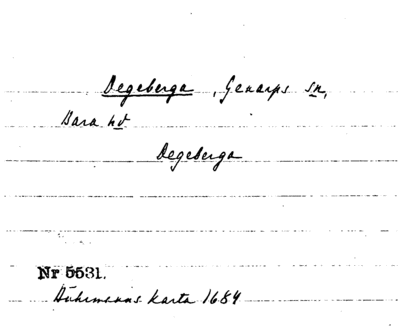 Degeberga, Genarps sn,
Bara hd
Degeberga
Nr 5531.
Buhrmanns karta 1684